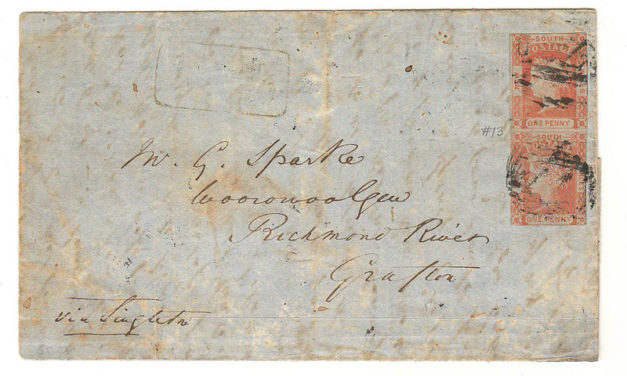 SOUTH
POSTAGE
ONE PENNY
#13
SOUTH
ONE PENNY
Mr. G. Sparke
Wooroowoolgen
Richmond River
Grafton
via Singleton